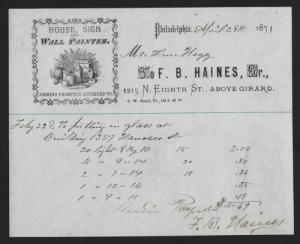 HOUSE, SIGN
AND
WALL PAINTER.
JOBBING PROMPTLY ATTENDED TO.
Philadelphia, April 28th 1871
Mr. Wm. Hogg
To F. B. HAINES, Dr.,
1215 N. EIGHTH ST. ABOVE GIRARD.
Feby 22d To putting in glass at
Building 1357 Hanover St
20 light 8 by 10 15 3.00
4 " 9 " 14 20 .80
2 " 9 " 14 18 .36
1 " 12 " 16 .35
1 " 9 " 11 .18
F. B. Haines